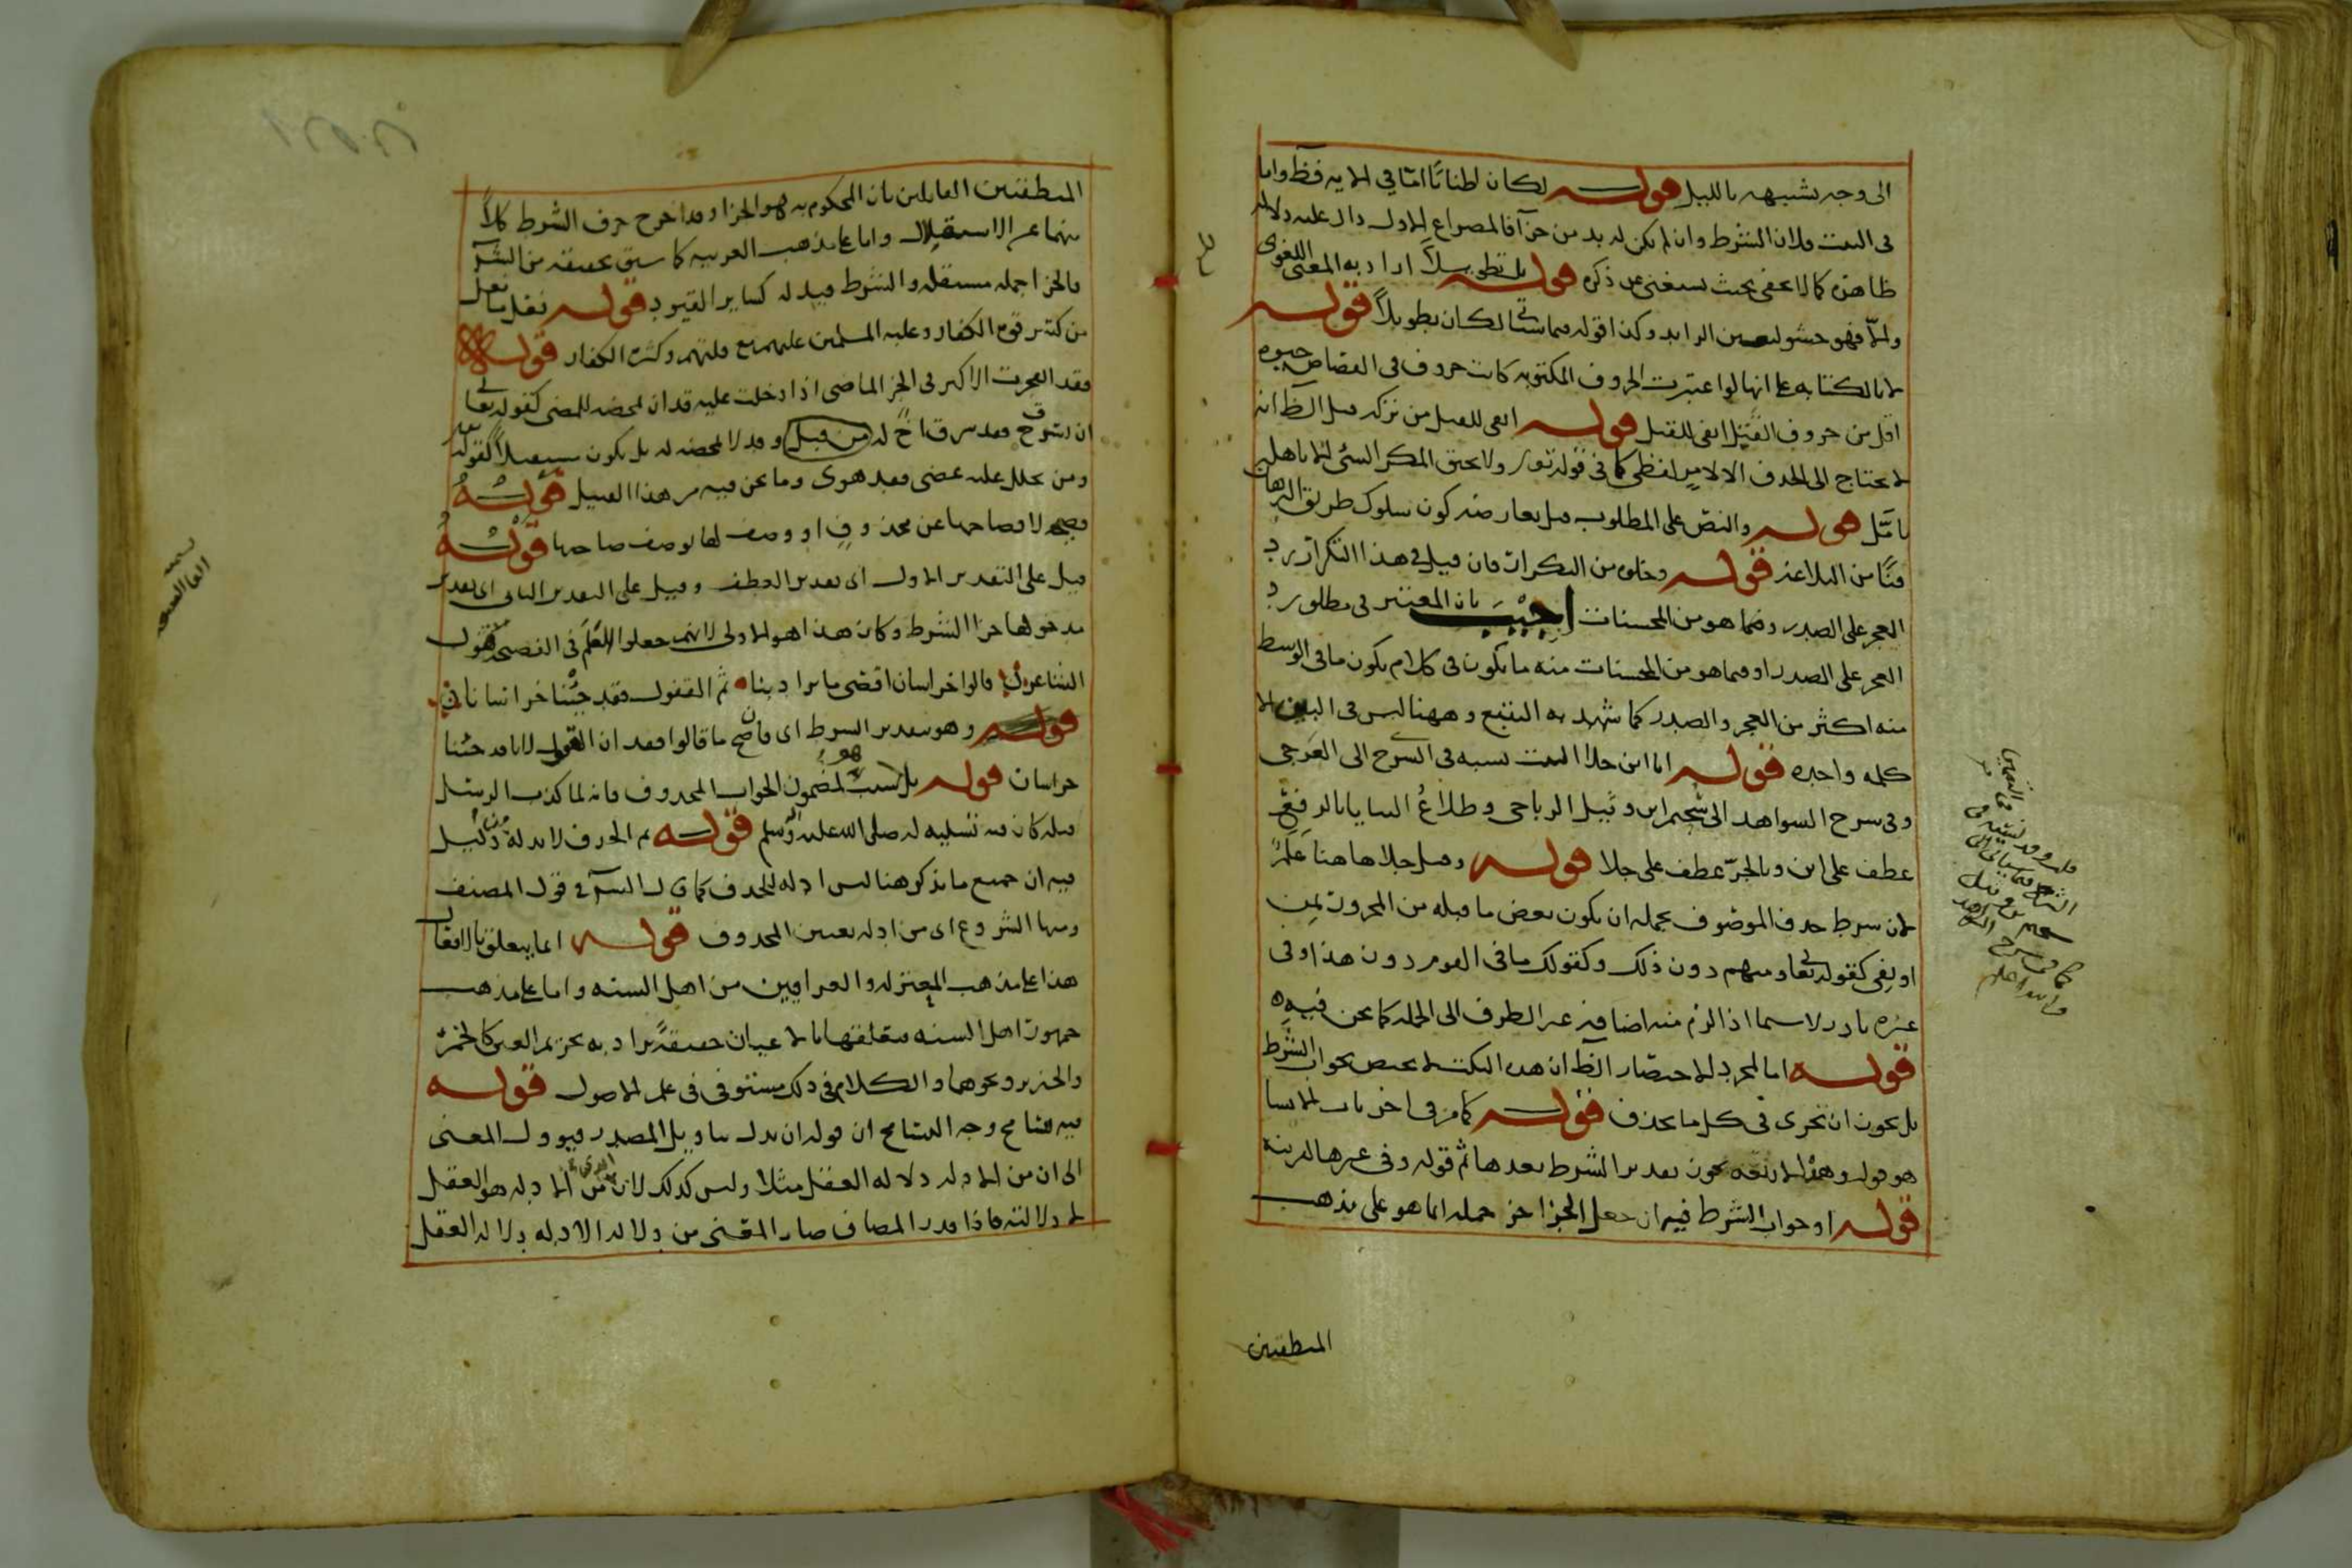 الى وجه تشبيهه بالليل قوله لكان اطنابًا اما في الاية فظ واما
في البيت فلان الشرط وان لم يكن له بد من جزآ فالمصراع الاول دال عليه دلالة
ظاهرة كما لا يخفى بحيث يستغنى عن ذكره قوله بل تطويلاً اراد به المعنى اللغوى
والا فهو حشو لتعين الزايد وكذا قوله فيما سياتى لكان تطويلاً قوله
لا بالكتابه على انها لو اعتبرت الحروف المكتوبه كانت حروف في القصاص حيوه
اقل من حروف القتل انفى للقتل قوله انفى للقتل من تركه قيل الظ انه
لا يحتاج الى الحذف الا لامر لفظى كما في قوله تع ولا يحيق المكر السئ الا باهله
تامّل قوله والنص على المطلوب قيل يعارضه كون سلوك طريق البرهان
فنًا من البلاغة قوله وخلوه من التكرار فان قيل في هذا التكرار رد
العجز على الصدر وهما هو من المحسنات اجيب بان المعتبر في مطلق رد
العجز على الصدر او فيما هو من المحسنات منه ما يكون في كلام يكون ما في الوسط
منه اكثر من العجز والصدر كما شهد به التتبع وههنا ليس في البين الا
كلمه واحده قوله انا ابن جلا البيت نسبه في الشرح الى العرجى
وفى شرح الشواهد الى سُحيم ابن وثيل الرياحى وطلاعُ الثنايا بالرفع
عطف على ابن وبالجرّ عطف على جلا قوله وقيل جلا هاهنا عَلَمٌ
لان شرط حذف الموصوف بجمله ان يكون بعض ما قبله من المجرور بمِن
او بفِى كقوله تعالى ومنهم دون ذلك وكقولك ما في القوم دون هذا وفى
غيره نادر لاسيما اذا لزم منه اضافه غير الظرف الى الجمله كما نحن فيه
قوله اما لمجرد الاختصار الظ ان هذه النكت لا تختص بجواب الشرط
بل يجوز ان تجرى في كل ما يحذف قوله كما مر في اخر باب الانشا
هو قوله وهذه الاربعة يجوز تقدير الشرط بعدها ثم قوله وفى غيرها لقرينة
قوله او جواب الشرط فيه ان جعل الجزا جز جمله انما هو على مذهب
المنطقيين
المنطقيين القايلين بان المحكوم به هو الجزا وقد اخرج حرف الشرط كلاً
منهما عن الاستقلال واما على مذهب العربيه كما سبق تحقيقه من الش
فالجزا جمله مستقله والشرط قيد له كساير القيود قوله
من كثر قوم الكفار وغلبه المسلمين عليهم مع قلتهم وكثرة الكفار قوله
ان يسرق فقد سرق اخ له من قبل وقد لا محضه له بل يكون مستقبلاً كقوله تع
ومن يحلل عليه غضبى فقد هوى وما نحن فيه من هذا القبيل قوله
فصيحه لافصاحها عن محذوف او وصف لها بوصف صاحبها قوله
قيل على التقدير الاول اى تقدير العطف وقيل على التقدير الثانى اى تقدير
مدخولها جزا الشرط وكان هذا هو الاولى لانهم جعلوا العَلَم في الفصيحة قول
الشاعر قالوا خراسان اقصى ما يراد بنا ثم القفول فقد جئنا خراسانا
قوله وهو تقدير الشرط اى فان صح ما قالوا فقد ان القفول لانا قد جئنا
خراسان قوله بل سبب لمضمون الجواب المحذوف فانه لما كذب الرسل
قبله كان فيه تسليه له صلى الله عليه وسلم قوله ثم الحذف لا بد له من دليل
فيه ان جميع ما يذكر هنا ليس ادله للحذف كما قال الش في قول المصنف
ومنها الشروع اى من ادله تعيين المحذوف قوله انما يتعلق بالافعال
هذا على مذهب المعتزله والعراقيين من اهل السنه واما على مذهب
جمهور اهل السنه متعلقها بالاعيان حقيقةً يراد به تحريم العين كالخمر
والخنزير ونحوهما والكلام في ذلك مستوفى في علم الاصول قوله
فيه تسامح وجه التسامح ان قوله ان يدل بتاويل المصدر فيوول المعنى
الى ان من الادله دلاله العقل مثلا وليس كذلك لان الذى من الادله هو العقل
لا دلالته فاذا قدر المضاف صار المعنى من دلاله الادله دلاله العقل